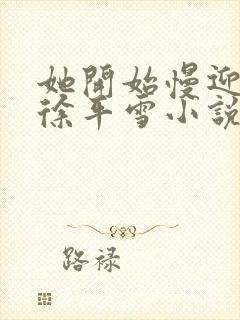 她開始慢迎
徐平雪小說
路祿